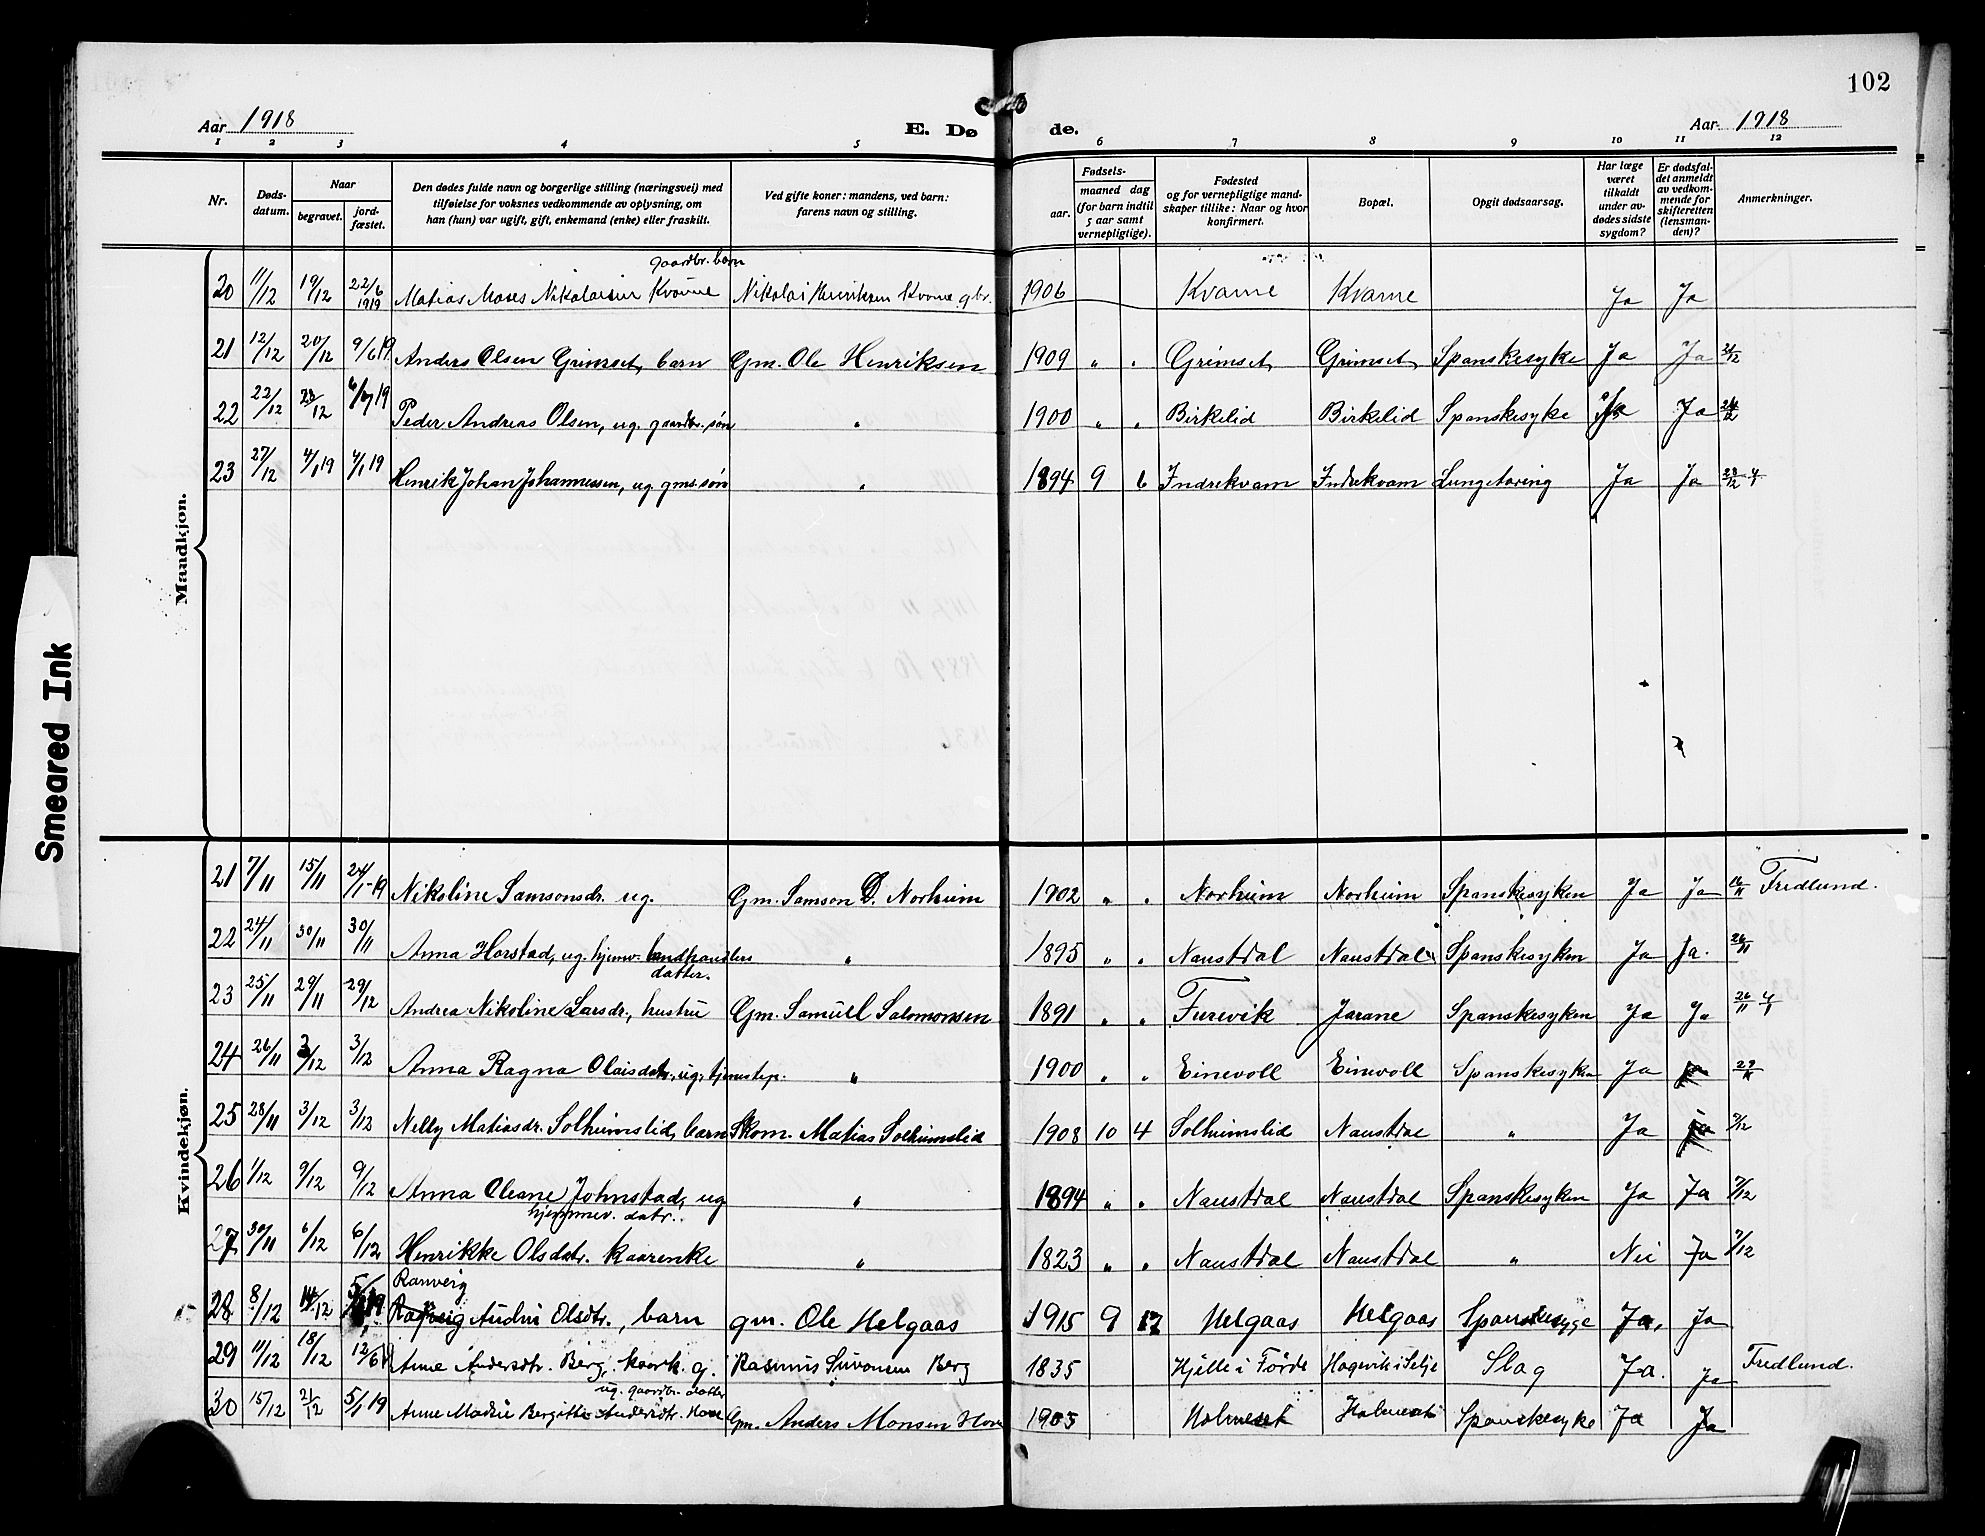 102
Aar 1918 E. Dø de. Aar 1918
1 2 3 4 5 6 7 8 9 10 11 12
Nr.
Døds-datum.
Naar
begravet.
jord-fæstet.
Den dødes fulde navn og borgerlige stilling (næringsvei) med
tilføielse for voksnes vedkommende av oplysning, om
han (hun) var ugift, gift, enkemand (enke) eller fraskilt.
Ved gifte koner: mandens, ved barn:
farens navn og stilling.
Fødsels-
aar.
maaned dag
(for barn indtil
5 aar samt
vernepligtige).
Fødested
og for vernepligtige mand-
skaper tillike: Naar og hvor
konfirmert.
Bopæl.
Opgit dødsaarsag.
Har læge
været
tilkaldt
under av-
dødes sidste
sygdom?
Er dødsfal-
det anmeldt
av vedkom-
mende for
skifteretten
(lensman-
den)?
Anmerkninger.
Maadkjøn.
gaardbr. barn
20 11/12 19/12 22/6 1919 Matias Moses Nikolaisen Kvame Nikolai Henriksen Kvame gbr. 1906 Kvame Kvame Ja Ja
21 12/12 20/12 9/6 19 Anders Olsen Grimset, barn Gm. Ole Henriksen 1909 " " Grimset Grimset Spanskesyke Ja Ja
22 22/12 19 Peder Andreas Olsen, ug. gaardbr. søn " 1900 " " Birkelid Birkelid Spanskesyke Ja Ja
23 27/12 4/1 19 4/1 19 Henrik Johan Johannessen, ug. gms. søn " 1894 9 6 Indrekvam Indrekvam Lungetæring Ja Ja 28/12 4/1
Smeared Ink
Kvindekjøn.
21 7/11 15/11 24/1-19 Nikoline Samsonsdr. ug. Gm. Samson D. Norheim 1902 " " Norheim Norheim Spanskesyken Ja Ja Fredlund.
22 24/11 30/11 30/11 Anna Horstad, ug. hjemv. landhandlers " 1895 " " Naustdal Naustdal Spanskesyken Ja Ja. 26/11
datter.
23 25/11 29/11 29/12 Andrea Nikoline Larsdr., hustru Gm. Samuel Salomonsen 1891 " " Furevik Jarane Spanskesyken Ja Ja 26/11 4/1
24 26/11 3/12 3/12 Anna Ragna Olaisdatr., ug. tjenestep. " 1900 " " Einevoll Einevoll Spanskesyken Ja Ja 29/11
25 28/11 3/12 3/12 Nelly Matiasdr. Solheimslid, barn Skom. Matias Solheimslid 1908 10 4 Solheimslid Naustdal " Ja Ja
26 1/12 9/12 9/12 Anna Oleane Johnstad, ug " 1894 " " Naustdal Naustdal Spanskesyken Ja Ja
hjemmev. datr..
27 30/11 6/12 6/12 Henrikke Olsdatr. kaarenke " 1823 " " Naustdal Naustdal " Nei Ja
Ranveig
28 8/12 14/12 19 Audni Olsdtr., barn gm. Ole Helgaas 1915 9 17 Helgaas Helgaas Spanskesyge Ja, Ja
29 11/12 18/12 12/6 Anne Andersdtr. Berg, kaark. g. Rasmus Simonsen Berg 1835 Hjelle i Førde Hagevik i Selje Slag Ja. Ja Fredlund.
ug. gaardbr. datter
30 15/12 21/12 5/1 19 Anne Madie Bergitte Andersdtr. Hove Gm. Anders Monsen Hove 1905 Holmeset Holmeset Spanskesyke Ja Ja